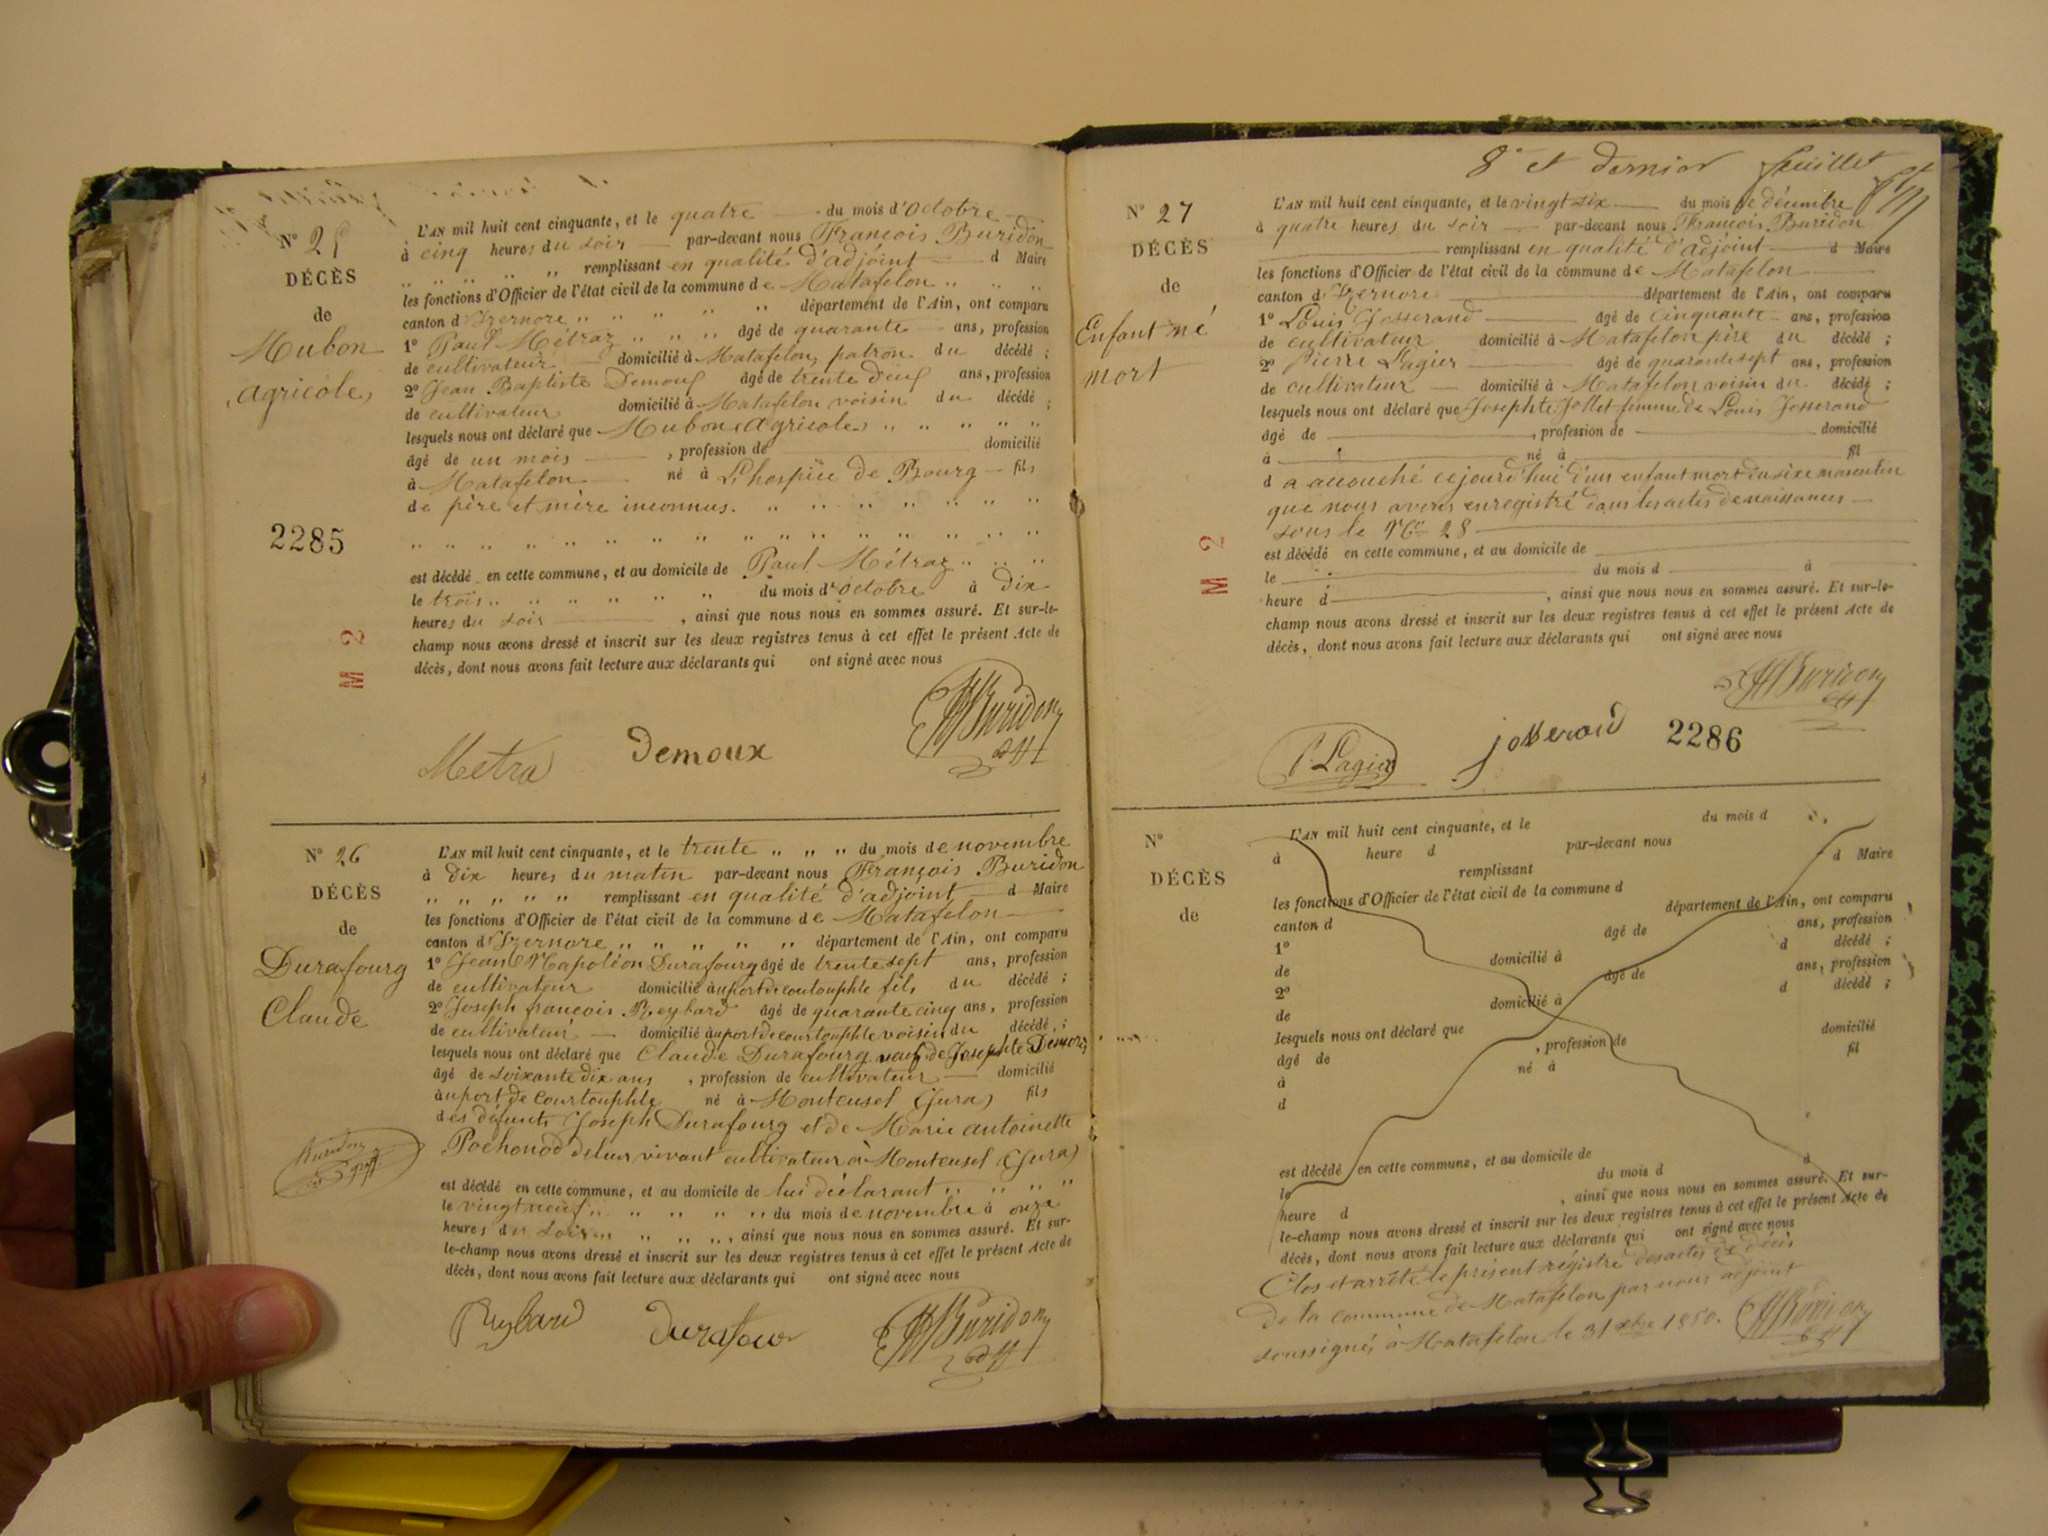 N° 25
DÉCÈS
de
Mubon
agricole
2285
M 2
L'AN mil huit cent cinquante, et le quatre du mois d'octobre
à cinq heures du soir par-devant nous François Buridon
remplissant en qualité d'adjoint d Maire
les fonctions d'Officier de l'état civil de la commune de Matafelon
canton d'Izernore département de l'Ain, ont comparu
1° Paul Métraz âgé de quarante ans, profession
de cultivateur domicilié à Matafelon, patron du décédé ;
2° Jean Baptiste Demoux âgé de trente deux ans, profession
de cultivateur domicilié à Matafelon voisin du décédé ;
lesquels nous ont déclaré que Mubon (agricole)
âgé de un mois , profession de domicilié
à Matafelon né à L'hospice de Bourg fils
de père et mère inconnus.
est décédé en cette commune, et au domicile de Paul Métraz
le trois du mois d'octobre à dix
heures du soir , ainsi que nous nous en sommes assuré. Et sur-le-
champ nous avons dressé et inscrit sur les deux registres tenus à cet effet le présent Acte de
décès, dont nous avons fait lecture aux déclarants qui ont signé avec nous
Buridon
Metra Demoux
N° 26
DÉCÈS
de
Durafourg
Claude
L'AN mil huit cent cinquante, et le trente du mois de novembre
à dix heures du matin par-devant nous François Buridon
remplissant en qualité d'adjoint d Maire
les fonctions d'Officier de l'état civil de la commune de Matafelon
canton d'Izernore département de l'Ain, ont comparu
1° Jean Napoléon Durafourg âgé de trente sept ans, profession
de cultivateur domicilié à uport de coutouphle fils du décédé ;
2° Joseph françois Reybard âgé de quarante cinq ans, profession
de cultivateur domicilié à uport de courtouphle voisin du décédé ;
lesquels nous ont déclaré que Claude Durafourg veuf de Josephte
âgé de soixante dix ans , profession de cultivateur domicilié
à uport de courtouphle né à Montcusel (Jura) fils
des défunts Joseph Durafourg et de Marie antoinette
Pochonod de leur vivant cultivateur à Montcusel (Jura)
est décédé en cette commune, et au domicile de lui déclarant
le vingt neuf du mois de novembre à onze
heures du soir , ainsi que nous nous en sommes assuré. Et sur-
le-champ nous avons dressé et inscrit sur les deux registres tenus à cet effet le présent Acte de
décès, dont nous avons fait lecture aux déclarants qui ont signé avec nous
Buridon
Reybard Durafour Buridon
8e et dernier feuillet
N° 27
DÉCÈS
de
Enfant né
mort
M 2
L'AN mil huit cent cinquante, et le vingt six du mois de décembre
à quatre heures du soir par-devant nous François Buridon
remplissant en qualité d'adjoint d Maire
les fonctions d'Officier de l'état civil de la commune de Matafelon
canton d'Izernore département de l'Ain, ont comparu
1° Louis Josserand âgé de cinquante ans, profession
de cultivateur domicilié à Matafelon père du décédé ;
2° Pierre Lagier âgé de quarante sept ans, profession
de cultivateur domicilié à Matafelon voisin du décédé ;
lesquels nous ont déclaré que Josephte Jollet femme de Louis Josserand
âgé de , profession de domicilié
à né à fil
d a accouché cejourd'hui d'un enfant mort du sexe masculin
que nous avons enregistré dans les actes de naissances
sous le N° 28
est décédé en cette commune, et au domicile de
le du mois d à
heure d , ainsi que nous nous en sommes assuré. Et sur-le-
champ nous avons dressé et inscrit sur les deux registres tenus à cet effet le présent Acte de
décès, dont nous avons fait lecture aux déclarants qui ont signé avec nous
Buridon
P. Lagier josserand 2286
N°
DÉCÈS
de
L'AN mil huit cent cinquante, et le du mois d
à heure d par-devant nous
remplissant d Maire
les fonctions d'Officier de l'état civil de la commune d
canton d département de l'Ain, ont comparu
1° âgé de ans, profession
de domicilié à d décédé ;
2° âgé de ans, profession
de domicilié à d décédé ;
lesquels nous ont déclaré que
âgé de , profession de domicilié
à né à fil
d
est décédé en cette commune, et au domicile de
le du mois d à
heure d , ainsi que nous nous en sommes assuré. Et sur-
le-champ nous avons dressé et inscrit sur les deux registres tenus à cet effet le présent Acte de
décès, dont nous avons fait lecture aux déclarants qui ont signé avec nous
Clos et arrêté le présent régistre des actes de décès
de la commune de Matafelon par nous adjoint
soussigné, à Matafelon le 31 xbre 1850. Buridon